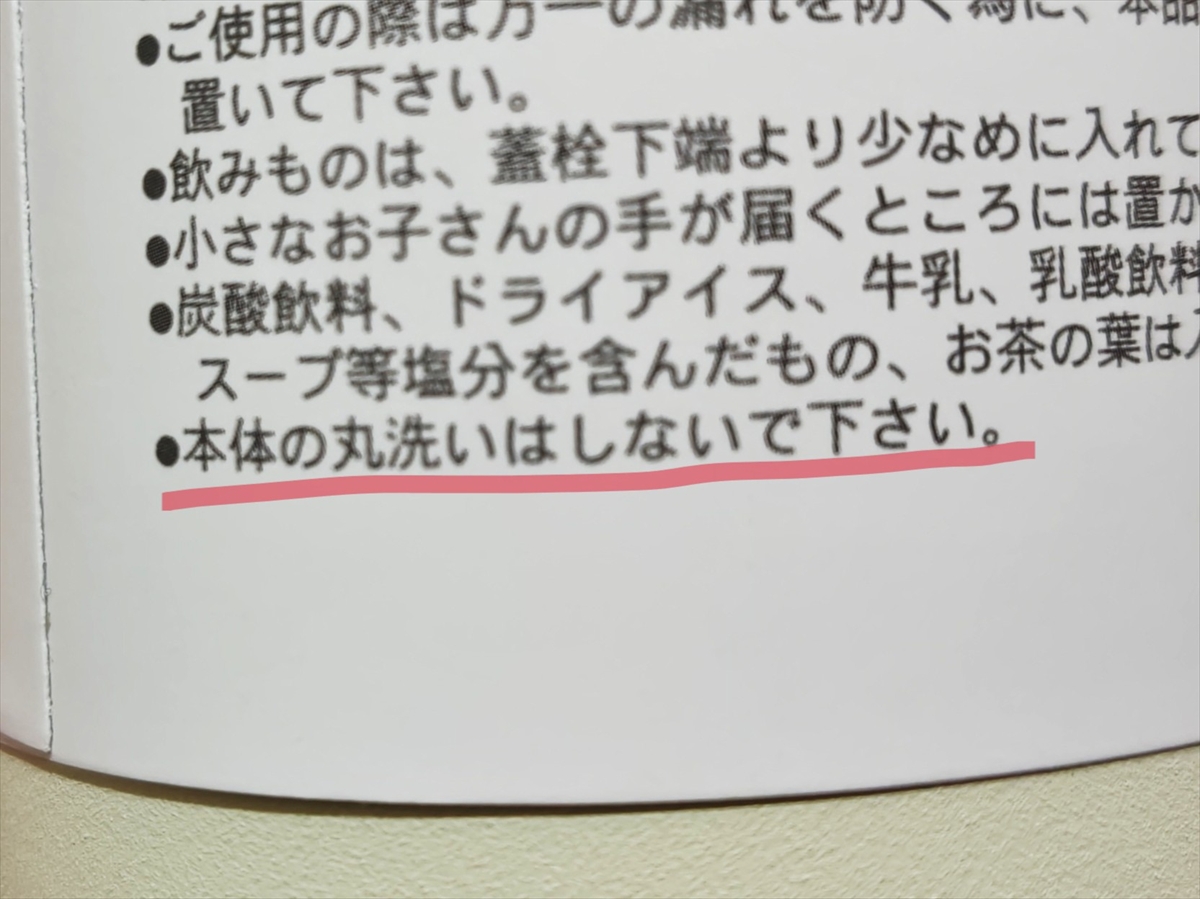 ●ご使用の際は万一の漏れを防ぐ為に、本品
置いて下さい。
●飲みものは、蓋栓下端より少なめに入れて
●小さなお子さんの手が届くところには置か
●炭酸飲料、ドライアイス、牛乳、乳酸飲料
スープ等塩分を含んだもの、お茶の葉は入
●本体の丸洗いはしないで下さい。